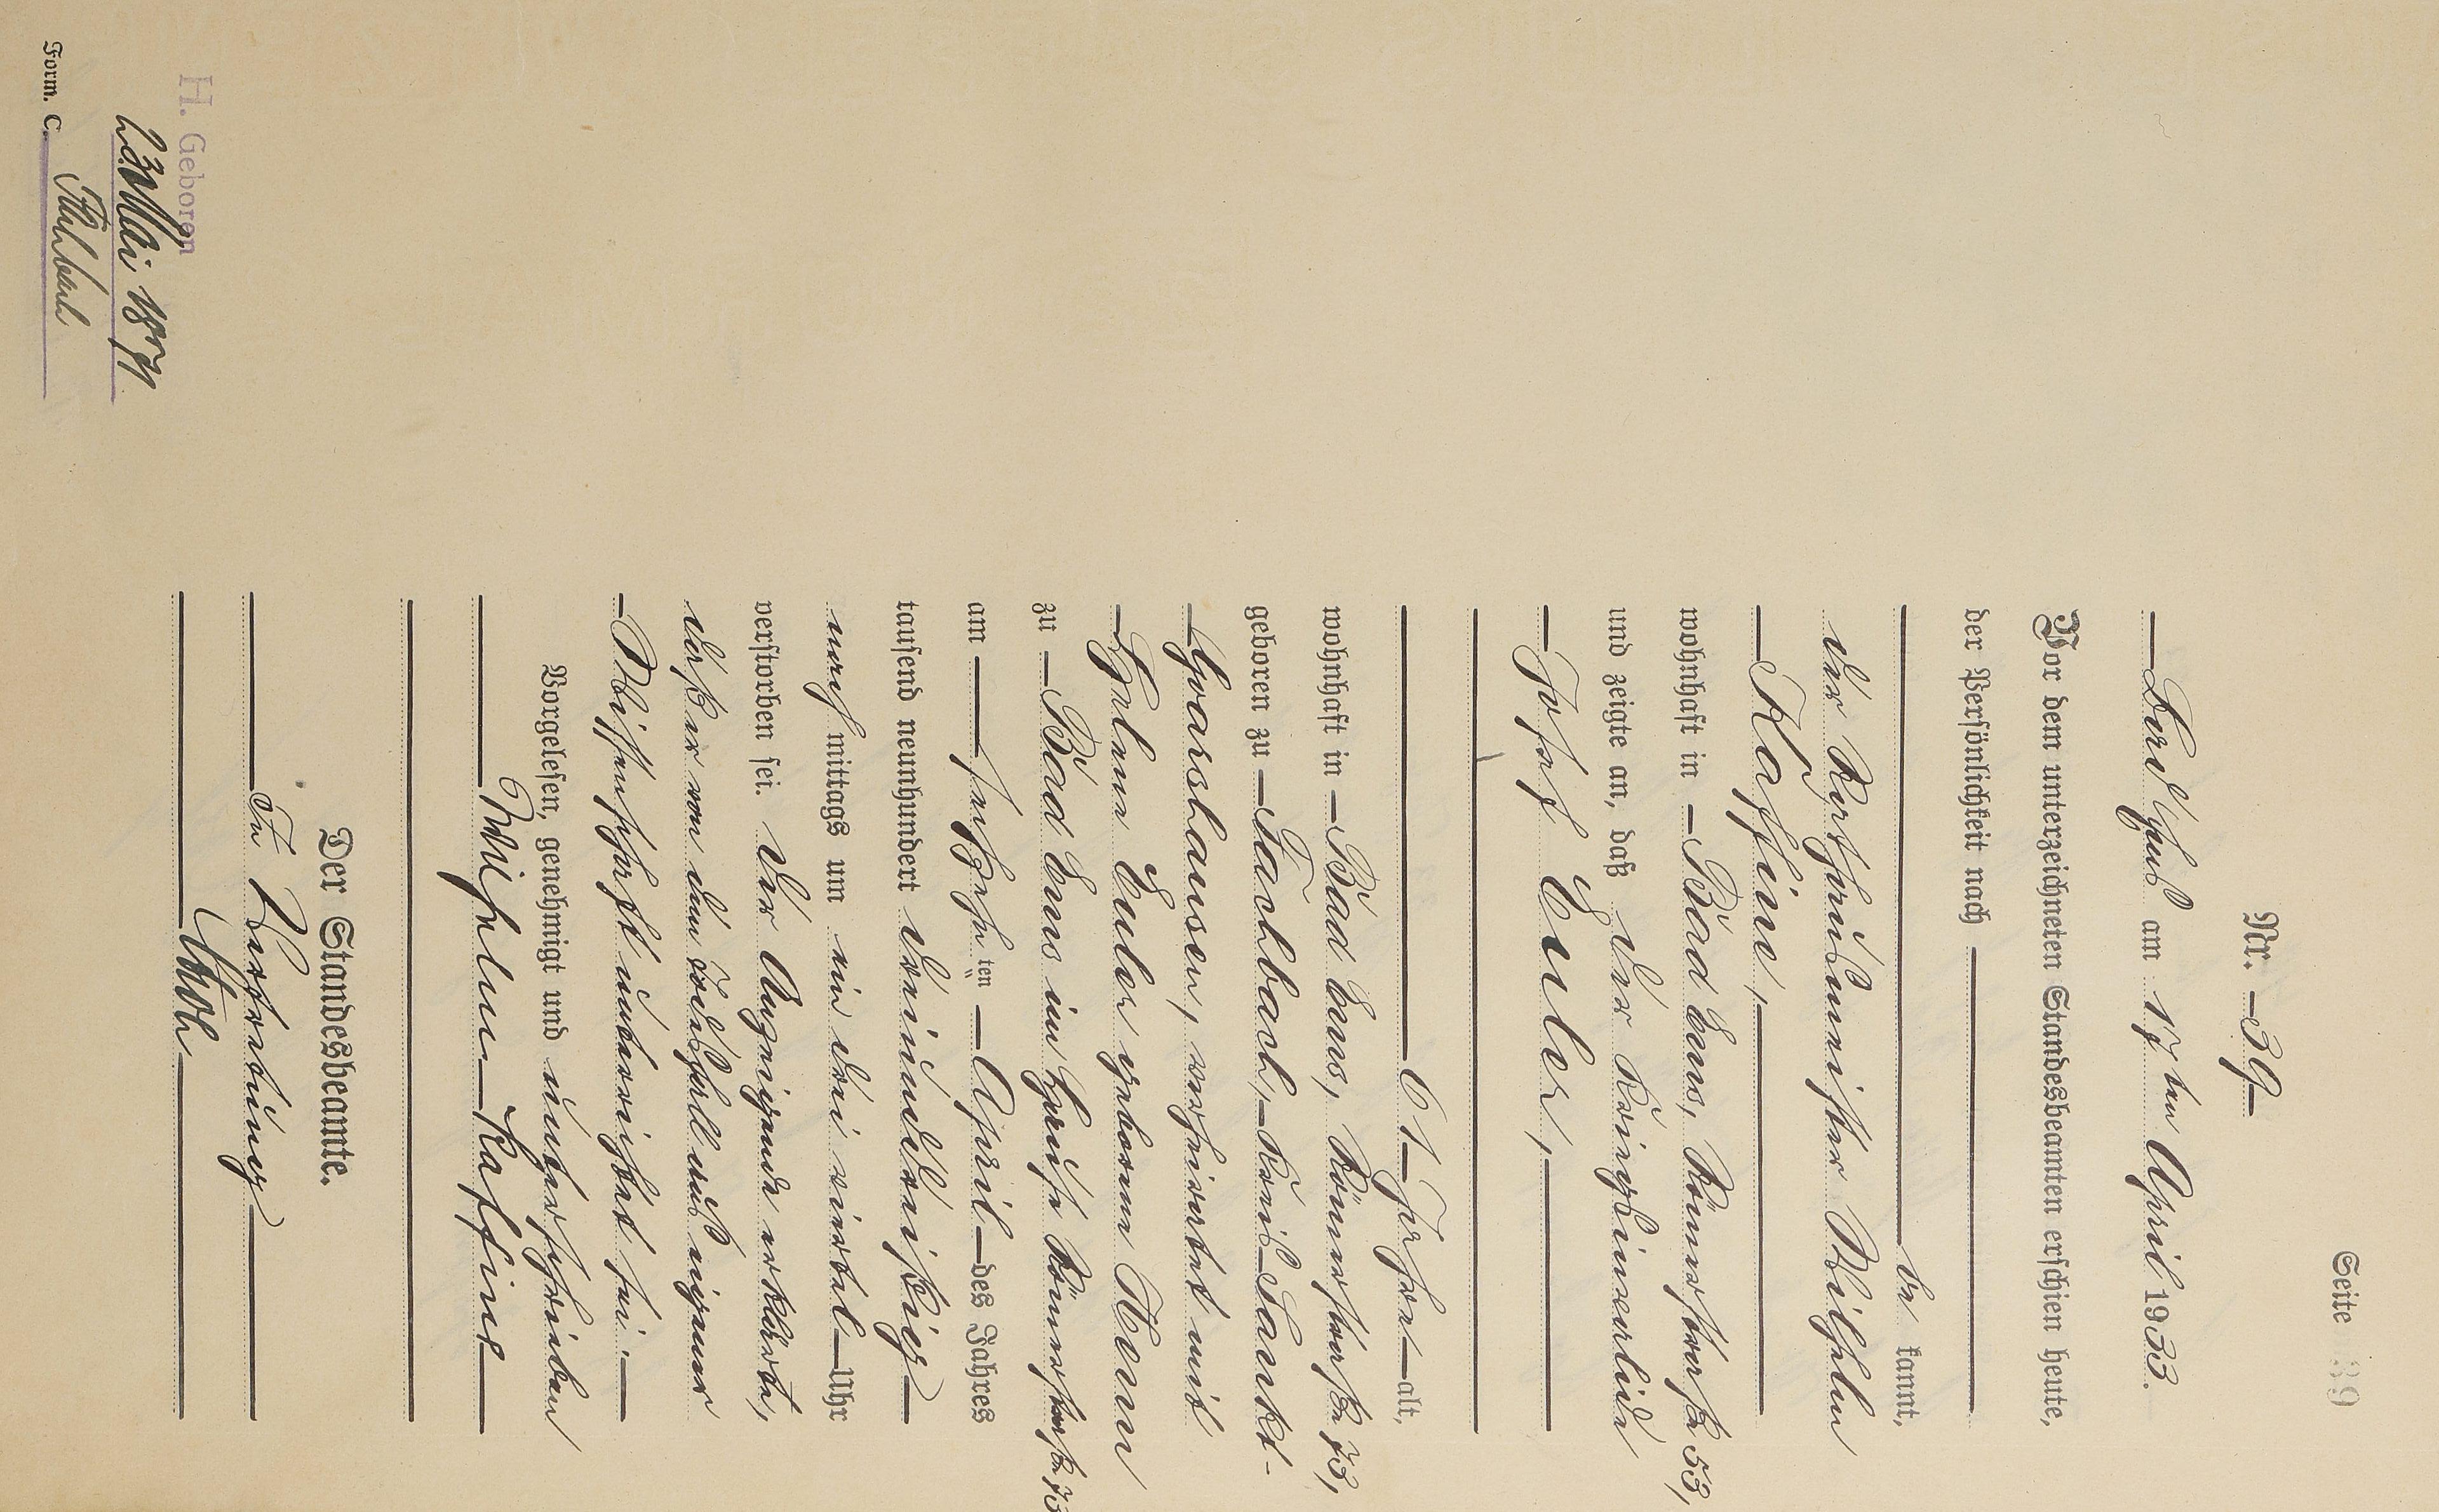 Seite 39
Nr. 39
Bad Ems am 17ten April 1933.
Vor dem unterzeichneten Standesbeamten erschien heute,
der Persönlichkeit nach
be kannt,
der Wilhelm
Kaffine,
wohnhaft in Bad Ems, Römerstraße 53,
und zeigte an, daß der Kriegsinvalide
Josef Euler,
61 Jahre alt,
wohnhaft in Bad Ems, Römerstraße 73,
geboren zu Fachbach, Kreis Sankt-
Goarshausen, verheiratet mit
Helene Euler geborene Kenn
zu Bad Ems im Hause Römerstraße 73
am sechzehnten April des Jahres
tausend neunhundert dreiunddreißig
nach mittags um ein drei viertel Uhr
verstorben sei. Der Anzeigende erklärte,
daß er von dem Todesfall aus eigener
Wissenschaft unterrichtet sei.
Vorgelesen, genehmigt und unterschrieben
Wilhelm Kaffine
Der Standesbeamte.
In Vertretung
H. Geboren
Mai 1871
Fachbach
Form. C.